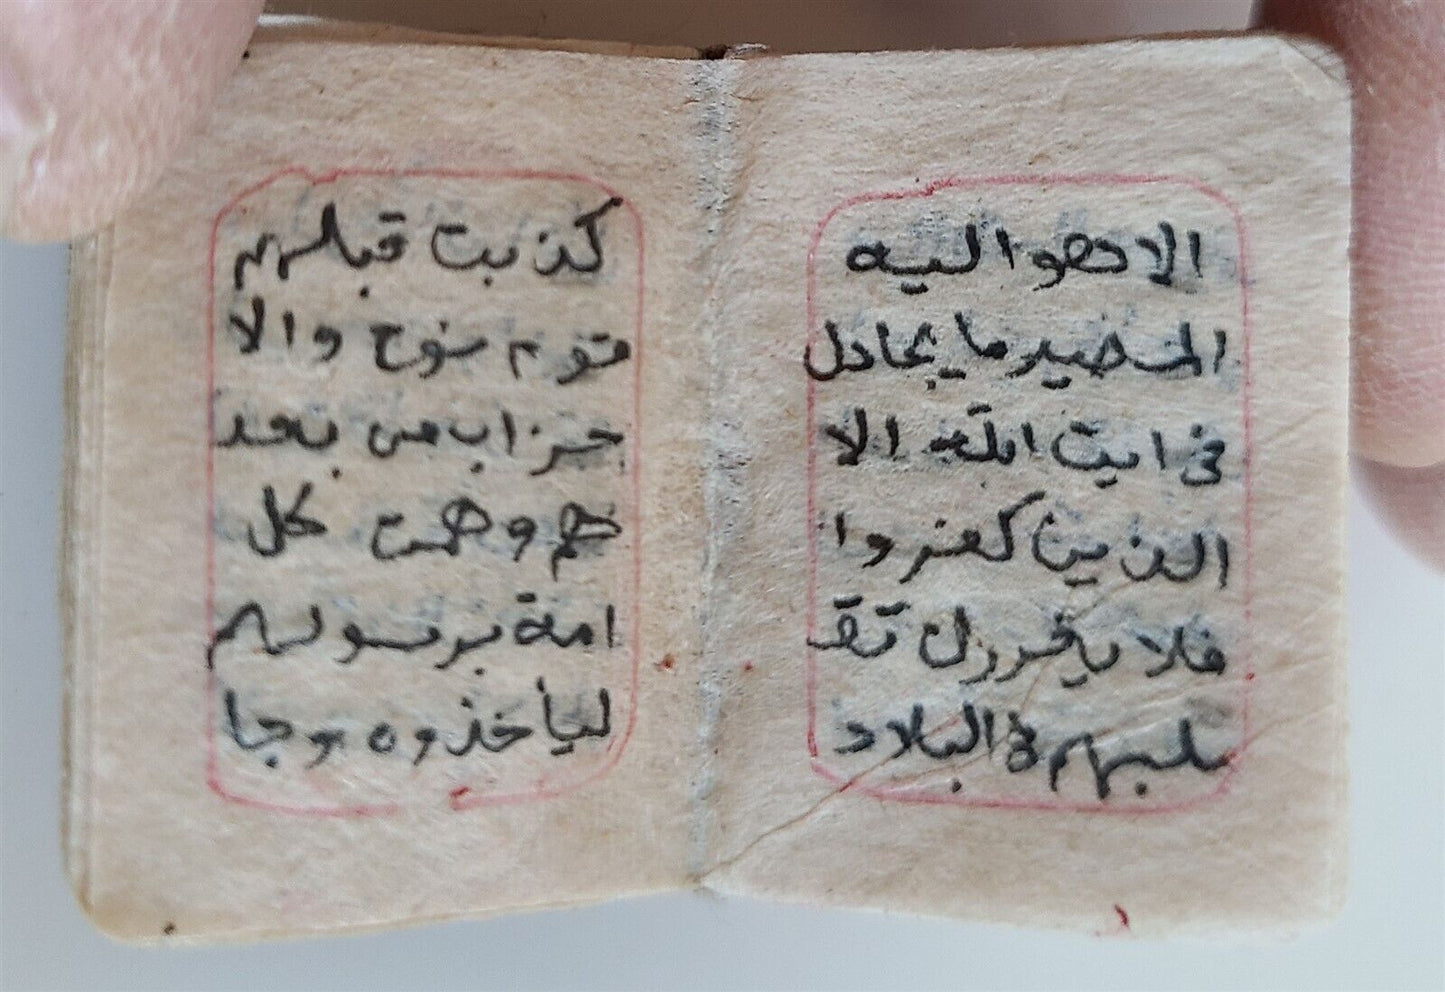 الا هو اليه
المصير ما يجادل
فى ايت الله الا
الذين كفروا
فلا يغررك تقـ
ـلبهم فى البلاد
كذبت قبلهم
قوم نوح والا
حزاب من بعد
هم وهمت كل
امة برسولهم
ليأخذوه وجا